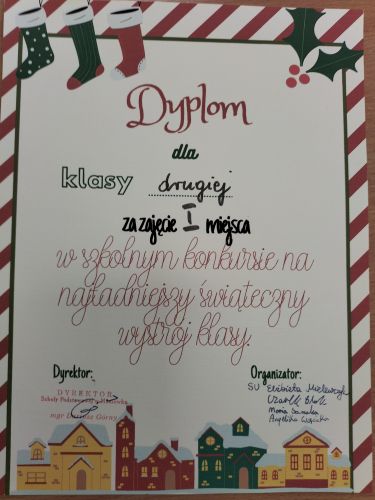 Dyplom
dla
klasy drugiej
za zajęcie I miejsca
w szkolnym konkursie na
najładniejszy świąteczny
wystrój klasy.
Dyrektor:
Organizator:
DYREKTOR
Szkoły Podstawowej w
mgr Dariusz Górny
SU Elżbieta
Maria
Angelika